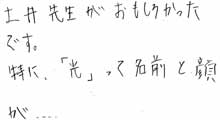 土井先生がおもしろかった
です。
特に、「光」って名前と顔
が....